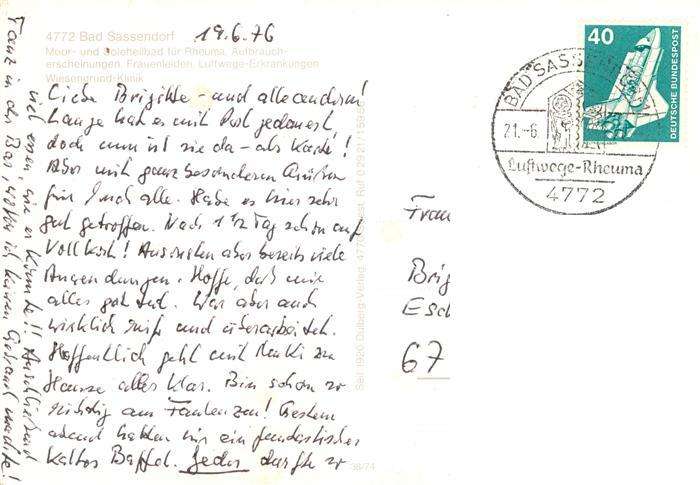 4772 Bad Sassendorf
Moor- und Soleheilbad für Rheuma, Aufbrauch-
erscheinungen, Frauenleiden, Luftwege-Erkrankungen
Wiesengrund-Klinik
19.6.76
Liebe Brigitte - und alle anderen!
Lange hat es mit Post gedauert,
doch nun ist sie da - als Karte!
Aber mit ganz besonderen Grüßen
für Euch alle. Habe es hier sehr
gut getroffen. Nach 1 1/2 Tag schon auf
Vollkost! Ansonsten aber bereits viele
Anwendungen. Hoffe, daß mir
alles gut tut. War aber auch
wirklich reif und überarbeitet.
Hoffentlich geht mit zu
Hause alles klar. Bin schon so
richtig am Faulenzen! Gestern
abend hatten wir ein fantastisches
kaltes Büffet. Jeder durfte so
viel essen, wie er konnte!! Anschließend
Tanz in der Bar, wobei ich keinen Gebrauch machte!
Seit 1920 Dülberg-Verlag, 477 Soest, Ruf 0 29 21/1 59
36/74
40
DEUTSCHE BUNDESPOST
BAD SASSENDORF
21.-6
Luftwege-Rheuma
4772
Frau
Brig
Esch
67